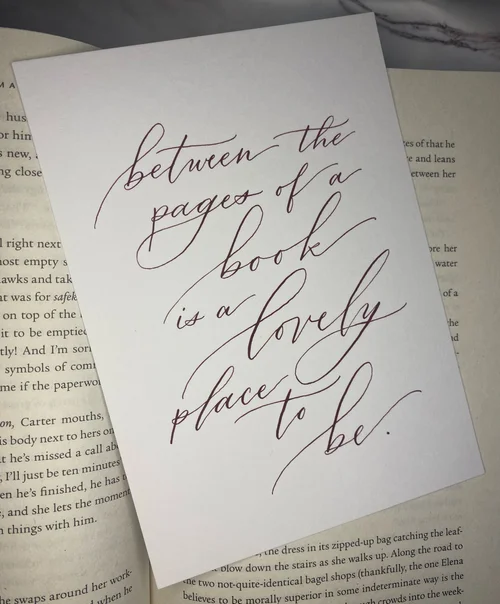 between the
pages of a
book
is a lovely
place to
be.
hus
or him
s new,
ng close
l right next
ost empty s
awks and tak
at was for safek
on top of the
it to be emptied
tly! And I'm sor
symbols of com
me if the paperwo
on, Carter mouths,
is body next to hers on
t he's missed a call ab
, I'll just be ten minutes
en he's finished, he has
, and she lets the moment
n things with him.
he swaps around her work-
and when he
es of that he
e and leans
etween her
ore her
water
of a
he
nd
, the dress in its zipped-up bag catching the leaf-
blow down the stairs as she walks up. Along the road to
the two not-quite-identical bagel shops (thankfully, the one Elena
believes to be morally superior in some indeterminate way is the
crowds into the week-